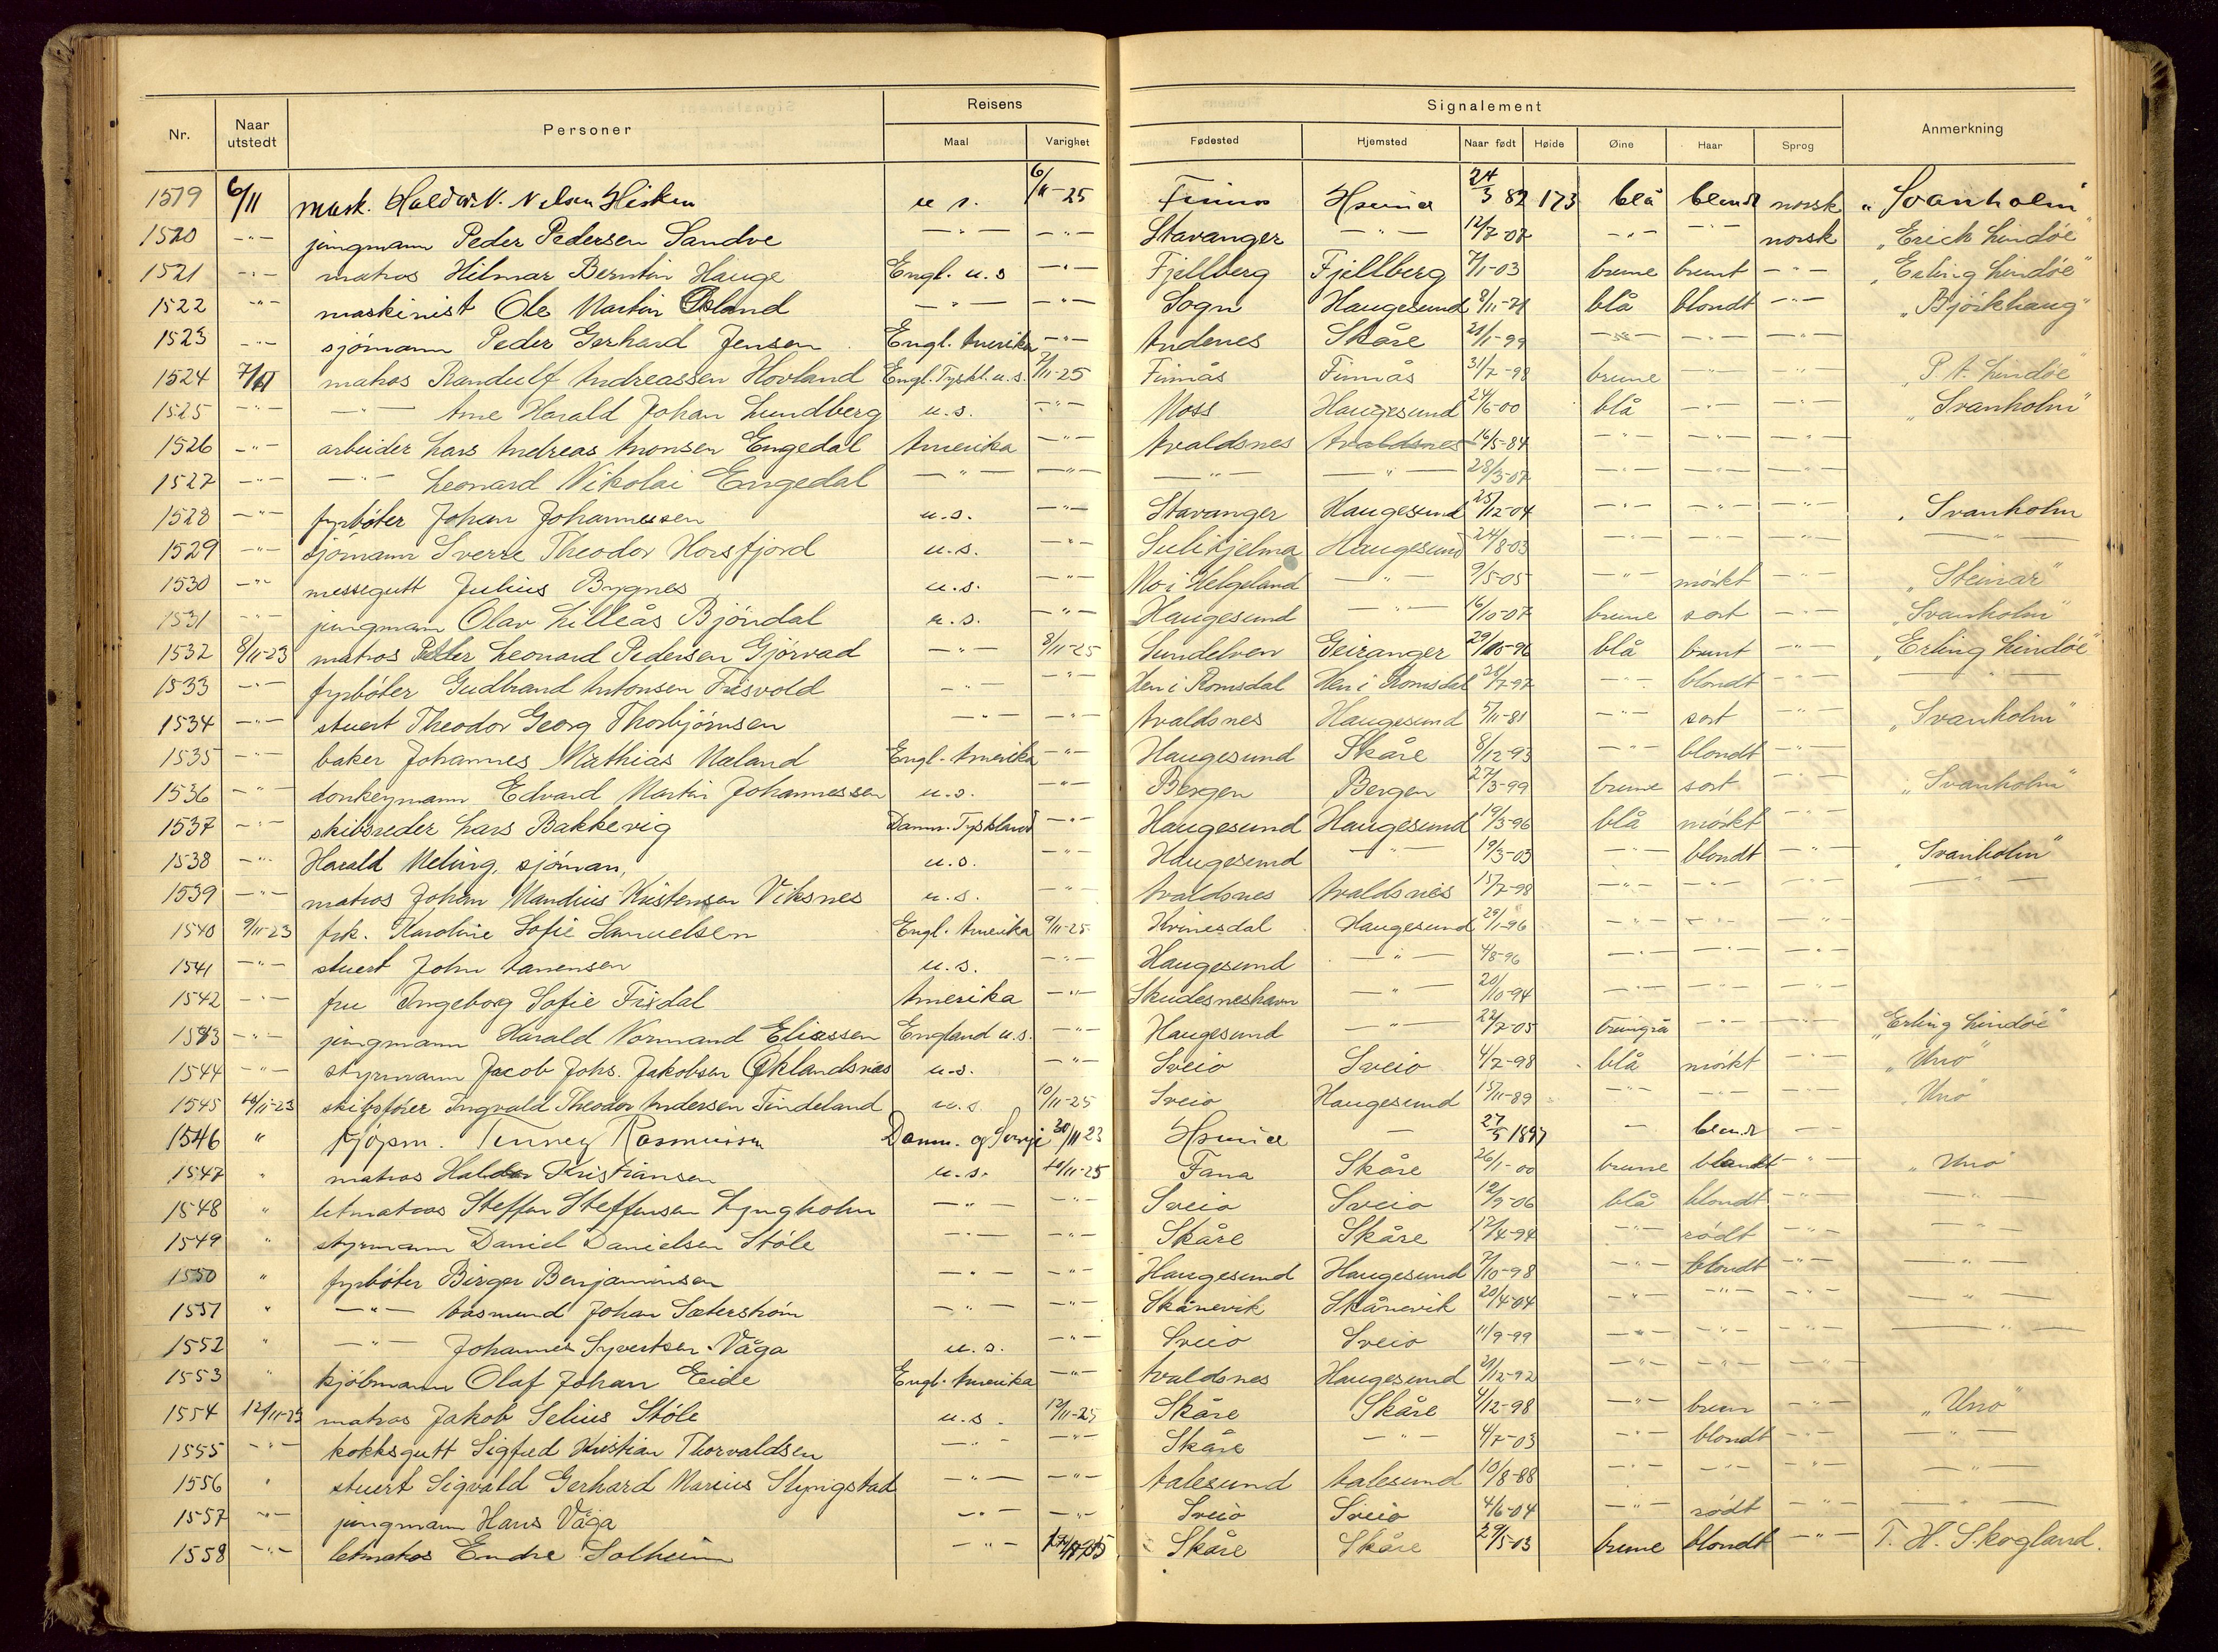 Reisens Signalement
Nr. Naar utstedt Personer Maal Varighet Fødested Hjemsted Naar født Høide Øine Haar Sprog Anmerkning
1519 6/11 mask. u s. 6/11-25 24/3 82 173 blå blondt norsk "Svanholm"
1520 -"- jungmann Peder Pedersen Sandve -"- -"- Stavanger -"- 12/7-07 -"- -"- norsk "Erick Lindøe"
1521 -"- matros Hilmar Berntin Hauge Engl. u.s -"- Fjellberg Fjellberg 7/1-03 brune brunt -"- "Erling Lindøe"
1522 -"- maskinist Ole Martin Øland -"- -"- Sogn Haugesund 8/11-71 blå blondt -"- "Bjørkhaug"
1523 -"- sjömann Peder Gerhard Jensen Engl. Amerika -"- Andenes Skåre 21/1-99 -"- -"- -"-
1524 7/11 matros Randulf Andreassen Hovland Engl. Tyskl. u.s. 7/11-25 Finnås Finnås 31/7-98 brune -"- -"- "P. A. Lindøe"
1525 -"- -"- Arne Harald Johan Lundberg u.s. -"- Moss Haugesund 24/6-00 blå -"- -"- "Svanholm"
1526 -"- arbeider Lars Andreas Amonsen Engedal Amerika -"- Avaldsnes Avaldsnes 16/5-84 -"- -"- -"-
1527 -"- -"- Leonard Nikolai Engedal -"- -"- -"- -"- 28/3-07 -"- -"- -"-
1528 -"- fyrböter Johan Johannessen u.s. -"- Stavanger Haugesund 25/12-04 -"- -"- -"- "Svanholm
1529 -"- sjömann Sverre Theodor Horsfjord u.s. -"- Sulitjelma Haugesund 24/8-03 -"- -"- -"- -"-
1530 -"- messegutt Julius Bygnes u.s. -"- Mo i Helgeland -"- 9/5-05 -"- mörkt -"- "Steinar"
1531 -"- jungmann Olav Lilleås Bjöndal u.s. -"- Haugesund -"- 16/10-07 brune sort -"- "Svanholm"
1532 8/11-23 matros Petter Leonard Pedersen Gjörvad -"- 8/11-25 Sundelven Geiranger 29/10-96 blå brunt -"- "Erling Lindøe"
1533 -"- fyrböter Gudbrand Antonsen Frisvold -"- -"- Hen i Romsdal Hen i Romsdal 28/7-97 -"- blondt -"- -"-
1534 -"- stuert Theodor Georg Thorbjörnsen -"- -"- Avaldsnes Haugesund 5/11-81 -"- sort -"- "Svanholm"
1535 -"- baker Johannes Mathias Næland Engl. Amerika -"- Haugesund Skåre 8/12-93 -"- blondt -"-
1536 -"- donkeymann Edvard Martin Johannessen u.s. -"- Bergen Bergen 27/3-99 brune sort -"- "Svanholm"
1537 -"- skibsreder Lars Bakkevig Danm. Tyskland -"- Haugesund Haugesund 19/3-96 blå mörkt -"-
1538 -"- Harald Meling, sjöman, u.s. -"- Haugesund -"- 19/3-03 -"- blondt -"- "Svanholm"
1539 -"- matros Johan Mandius Kristensen Viksnes u.s. -"- Avaldsnes Avaldsnes 15/7-98 -"- -"- -"- -"-
1540 9/11-23 frk. Karoline Sofie Samuelsen Engl. Amerika 9/11-25 Kvinesdal Haugesund 29/1-96 -"- -"- -"-
1541 -"- stuert John Aanensen u.s. -"- Haugesund -"- 4/8-96 -"- -"- -"-
1542 -"- fru Ingeborg Sofie Tisdal Amerika -"- Skudesneshavn -"- 20/10-94 -"- -"- -"-
1543 -"- jungmann Harald Normand Eliassen England u.s. -"- Haugesund -"- 22/7-05 brungrå -"- -"- "Erling Lindøe"
1544 -"- styrmann Jacob Johs. Jakobsen Öklandsnæs u.s. -"- Sveio Sveio 4/7-98 blå mörkt -"- "Uno"
1545 10/11-23 skibsförer Ingvald Theodor Andersen Tindeland u.s. 10/11-25 Sveio Haugesund 15/11-89 -"- -"- "Uno"
1546 " kjöpm. Rasmussen Danm. og Sverige 30/11 23 - 27/5 1897 - blondt
1547 " matros Haldor Kristiansen u.s. 10/11-25 Fana Skåre 26/1-00 brune blondt -"- "Uno"
1548 " letmatros Steffen Steffensen Lyngholm -"- -"- Sveio Sveio 12/9-06 blå blondt -"- -"-
1549 " styrmann Daniel Danielsen Stöle -"- -"- Skåre Skåre 12/4-94 -"- rödt -"- -"-
1550 " fyrböter Birger Benjaminsen -"- -"- Haugesund Haugesund 7/10-98 -"- blondt -"- -"-
1551 " -"- Aasmund Johan Sæterström -"- -"- Skånevik Skånevik 20/4-04 -"- -"- -"- -"-
1552 " -"- Johannes Syvertsen Våga u.s. -"- Sveio Sveio 11/9-99 -"- -"- -"- -"-
1553 " kjöbmann Olaf Johan Eide Engl. Amerika -"- Avaldsnes Haugesund 21/12-92 -"- -"- -"-
1554 12/11-23 matros Jakob Selius Stöle u.s. 12/11-25 Skåre Skåre 4/12-98 -"- brun -"- "Uno"
1555 -"- kokksgutt Sigfred Kristian Thorvaldsen -"- -"- Skåre -"- 4/7-03 -"- blondt -"- -"-
1556 " stuert Sigvald Gerhard Marius Slyngstad -"- -"- Aalesund Aalesund 10/8-88 -"- -"- -"- -"-
1557 -"- jungmann Hans Våga -"- -"- Sveio Sveio 4/6-04 -"- rödt -"- -"-
1558 -"- letmatros Endre Solheim -"- Skåre Skåre 29/5-03 brune blondt -"- T. H. Skogland.